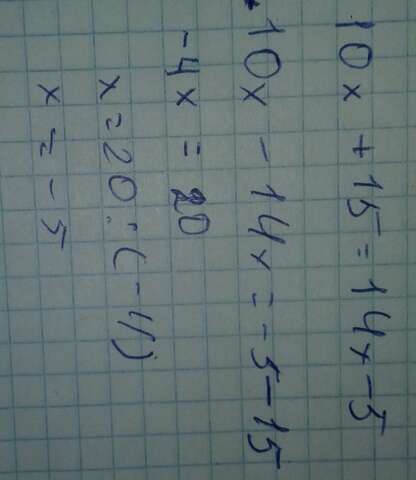 10x + 15 = 14x - 5
10x - 14x = - 5 - 15
-4x = 20
x = 20 : (-4)
x = - 5